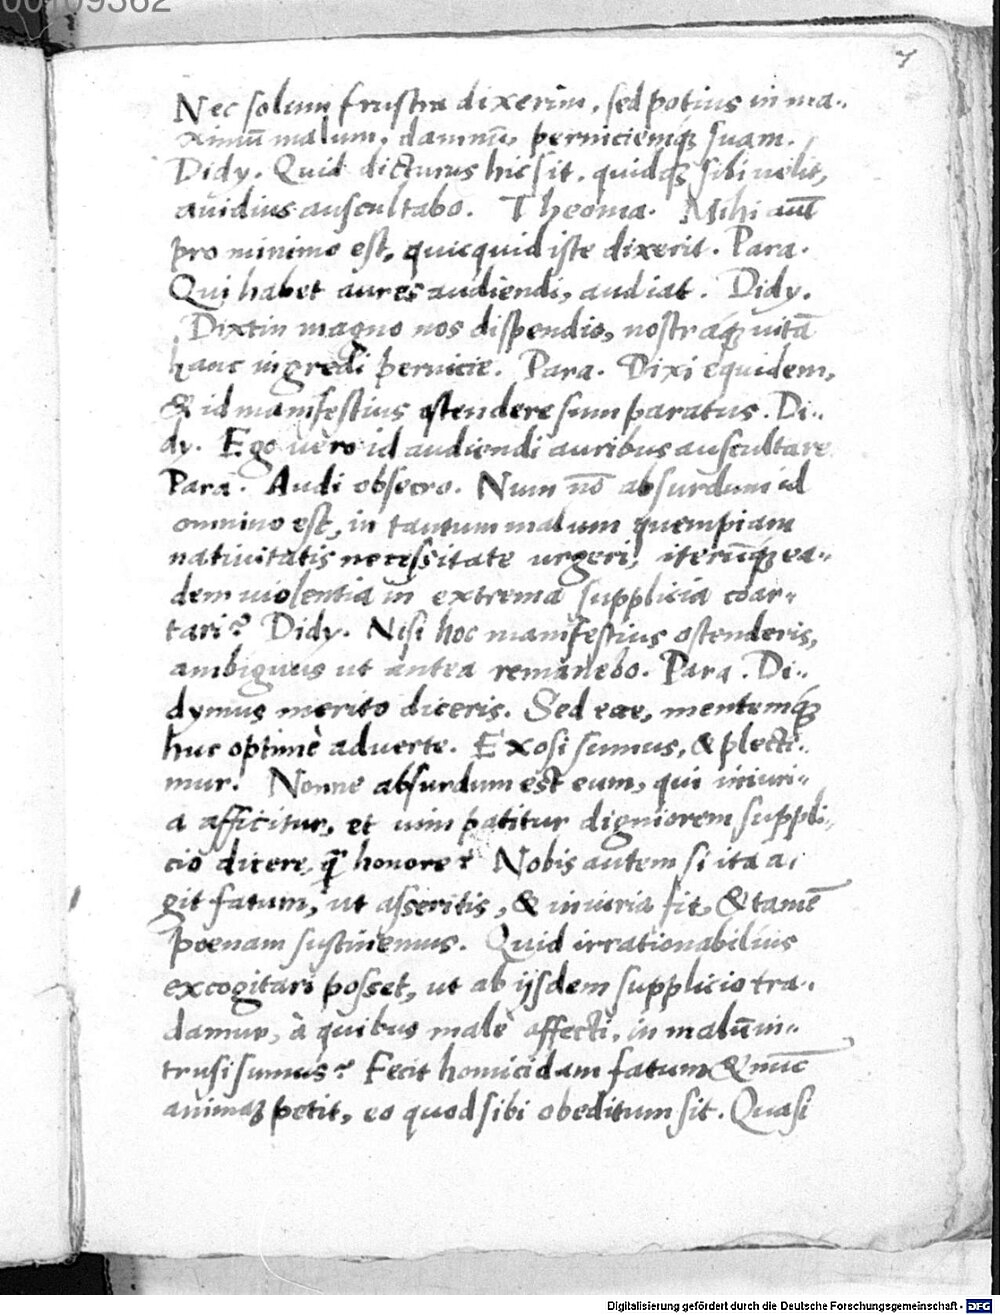 00109362
7
Nec solum frustra dixerim, sed potius in ma-
ximū malum, damnū, perniciemq́ꝫ suam.
Didy. Quid dicturus hic sit, quidq́ꝫ sibi uelit,
auidius auscultabo. Theoma. Mihi aūt
pro minimo est, quicquid iste dixerit. Para.
Qui habet aures audiendi, audiat. Didy.
Dixtin magno nos dispendio, nostraq́ꝫ uitā
hanc ingredi pernicie. Para. Dixi equidem,
& id manifestius ostendere sum paratus. Di-
dy. Ego uero id audiendi auribus auscultare
Para. Audi obsecro. Num nō absurdum id
omnino est, in tantum malum quempiam
natiuitatis necessitate urgeri, iterūq́ꝫ ea-
dem uiolentia in extrema supplicia coar-
tari? Didy. Nisi hoc manifestius ostenderis,
ambiguus ut antea remanebo. Para. Di-
dymus merito diceris. Sed eae, mentemq́ꝫ
huc optimè aduerte. Exosi sumus, & plecti-
mur. Nonne absurdum est eum, qui iniuri-
a afficitur, et uim patitur digniorem suppli-
cio dicere, q̃ honore? Nobis autem si ita a-
git fatum, ut asseritis, & iniuria fit, & tamē
poenam sustinemus. Quid irrationabilius
excogitari posset, ut ab ijsdem supplicio tra-
damur, à quibus malè affecti, in malū in-
trusi sumus? Fecit homicidam fatum & nūc
animaꝫ petit, eo quod sibi obeditum sit. Quasi
Digitalisierung gefördert durch die Deutsche Forschungsgemeinschaft - DFG